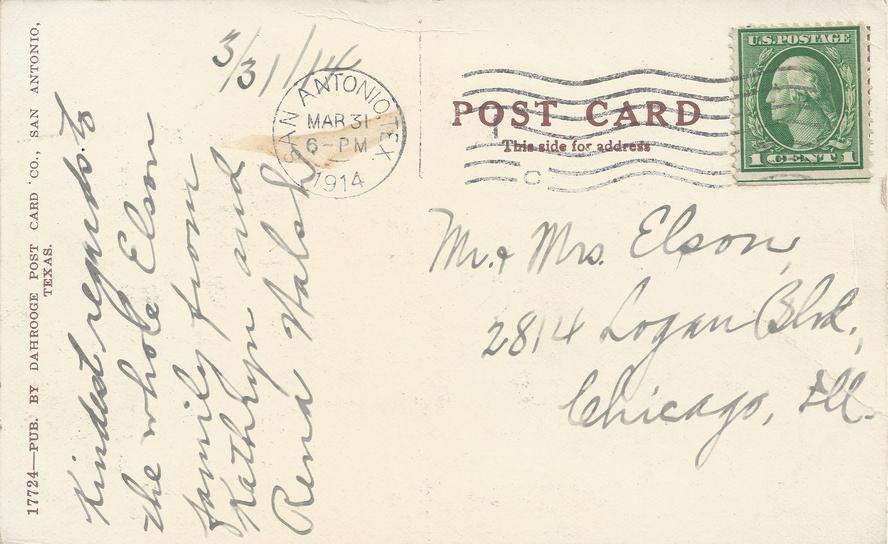 17724—PUB. BY DAHROOGE POST CARD CO., SAN ANTONIO,
TEXAS.
3/31/14
Kindest regards to
the whole Elson
family from
Kathryn and
Rena Walsh
SAN ANTONIO, TEX.
MAR 31
6-PM
1914
POST CARD
This side for address
U.S. POSTAGE
1 CENT 1
Mr. & Mrs. Elson,
2814 Logan Blvd.,
Chicago, Ill.